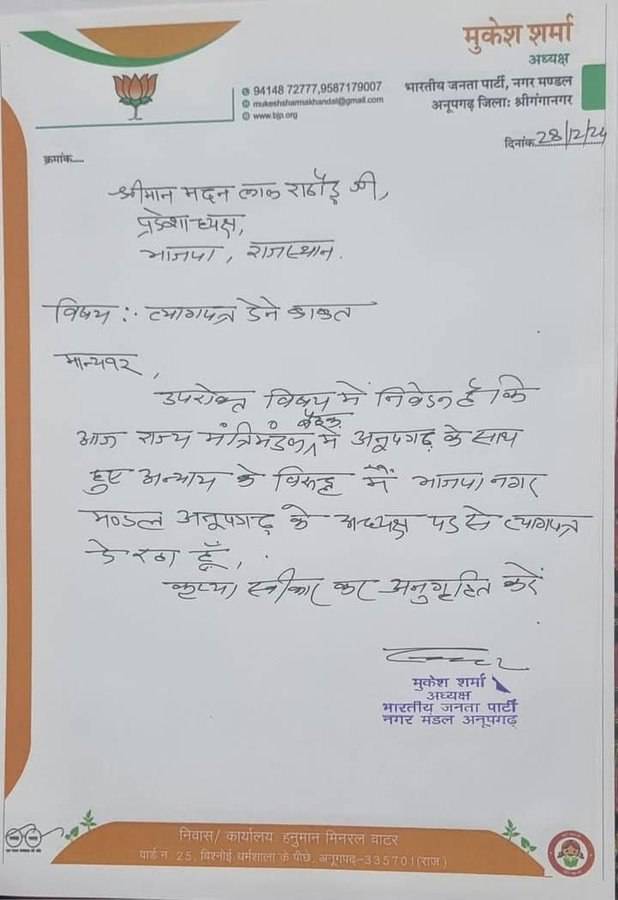 मुकेश शर्मा
अध्यक्ष
भारतीय जनता पार्टी, नगर मण्डल
अनूपगढ़ जिला: श्रीगंगानगर
94148 72777,9587179007
mukeshsharmakhandal@gmail.com
www.bjp.org
क्रमांक....
दिनांक 28/12/24
श्रीमान मदन लाल राठौड़ जी,
प्रदेशाध्यक्ष,
भाजपा, राजस्थान.
विषय :- त्यागपत्र देने बाबत
मान्यवर,
उपरोक्त विषय में निवेदन है कि
आज राज्य मंत्रिमंडल बैठक में अनूपगढ़ के साथ
हुए अन्याय के विरुद्ध मैं भाजपा नगर
मण्डल अनूपगढ़ के अध्यक्ष पद से त्यागपत्र
दे रहा हूँ,
कृप्या स्वीकार कर अनुगृहित करें
मुकेश शर्मा
अध्यक्ष
भारतीय जनता पार्टी
नगर मंडल अनूपगढ़
निवास/ कार्यालय हनुमान मिनरल वाटर
वार्ड न. 25, विश्नोई धर्मशाला के पीछे, अनूपगढ़-335701(राज.)